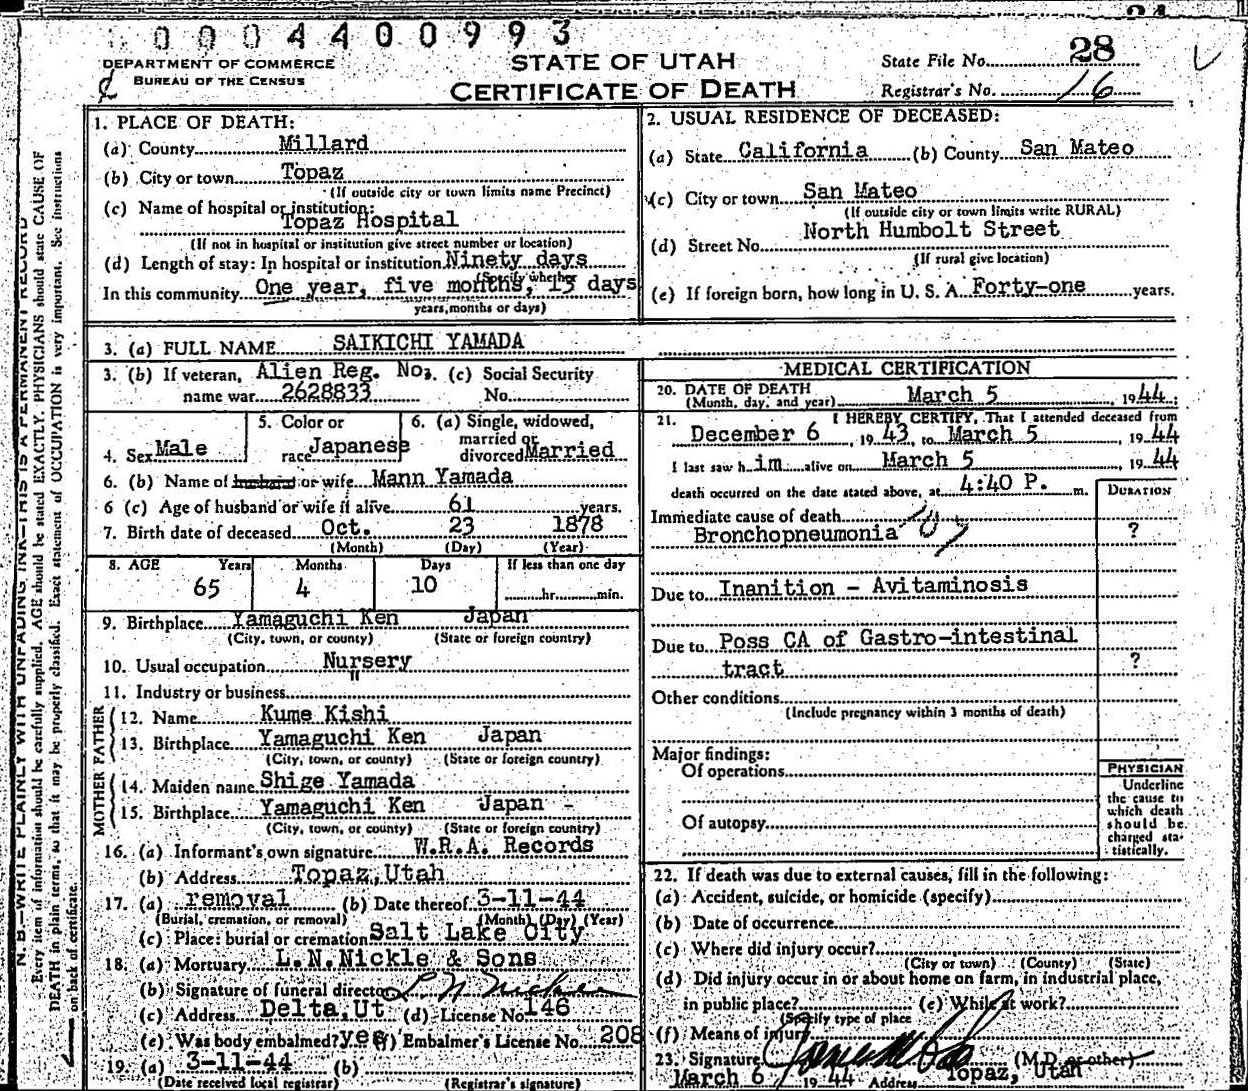 0004400993
DEPARTMENT OF COMMERCE
BUREAU OF THE CENSUS
STATE OF UTAH
CERTIFICATE OF DEATH
State File No. 28
Registrar's No. 16
1. PLACE OF DEATH:
(a) County Millard
(b) City or town Topaz
(If outside city or town limits name Precinct)
(c) Name of hospital or institution:
Topaz Hospital
(If not in hospital or institution give street number or location)
(d) Length of stay: In hospital or institution Ninety days
(Specify whether
In this community One year, five months, 15 days
years, months or days)
2. USUAL RESIDENCE OF DECEASED:
(a) State California (b) County San Mateo
(c) City or town San Mateo
(If outside city or town limits write RURAL)
(d) Street No. North Humbolt Street
(If rural give location)
(e) If foreign born, how long in U. S. A. Forty-one years.
3. (a) FULL NAME SAIKICHI YAMADA
3. (b) If veteran, Alien Reg. No. (c) Social Security
name war 2628833 No.
4. Sex Male
5. Color or
race Japanese
6. (a) Single, widowed,
married or
divorced Married
6. (b) Name of husband or wife Mann Yamada
6 (c) Age of husband or wife if alive 61 years.
7. Birth date of deceased Oct. 23 1878
(Month) (Day) (Year)
8. AGE Years Months Days If less than one day
65 4 10 hr. min.
9. Birthplace Yamaguchi Ken Japan
(City, town, or county) (State or foreign country)
10. Usual occupation Nursery
11. Industry or business "
FATHER
12. Name Kume Kishi
13. Birthplace Yamaguchi Ken Japan
(City, town, or county) (State or foreign country)
MOTHER
14. Maiden name Shige Yamada
15. Birthplace Yamaguchi Ken Japan
(City, town, or county) (State or foreign country)
16. (a) Informant's own signature W.R.A. Records
(b) Address Topaz, Utah
17. (a) removal (b) Date thereof 3-11-44
(Burial, cremation, or removal) (Month) (Day) (Year)
(c) Place: burial or cremation Salt Lake City
18. (a) Mortuary L.N.Nickle & Sons
(b) Signature of funeral director L N Nickle
(c) Address Delta, Ut (d) License No. 146
(e) Was body embalmed? yes (f) Embalmer's License No. 208
19. (a) 3-11-44 (b)
(Date received local registrar) (Registrar's signature)
MEDICAL CERTIFICATION
20. DATE OF DEATH
(Month, day, and year) March 5 1944;
21. I HEREBY CERTIFY, That I attended deceased from
December 6, 1943, to March 5, 1944
I last saw him alive on March 5, 1944
death occurred on the date stated above, at 4:40 P. m.
DURATION
Immediate cause of death 107
Bronchopneumonia ?
Due to Inanition - Avitaminosis
Due to Poss CA of Gastro-intestinal
tract ?
Other conditions
(Include pregnancy within 3 months of death)
Major findings:
Of operations
Of autopsy
PHYSICIAN
Underline
the cause to
which death
should be
charged sta-
tistically.
22. If death was due to external causes, fill in the following:
(a) Accident, suicide, or homicide (specify)
(b) Date of occurrence
(c) Where did injury occur?
(City or town) (County) (State)
(d) Did injury occur in or about home on farm, in industrial place,
in public place? (e) While at work?
(Specify type of place
(f) Means of injury
23. Signature (M.D. or other)
March 6 1944 Address Topaz, Utah
N. B.—WRITE PLAINLY WITH UNFADING INK—THIS IS A PERMANENT RECORD
Every item of information should be carefully supplied. AGE should be stated EXACTLY. PHYSICIANS should state CAUSE OF
DEATH in plain terms, so that it may be properly classified. Exact statement of OCCUPATION is very important. See instructions
on back of certificate.